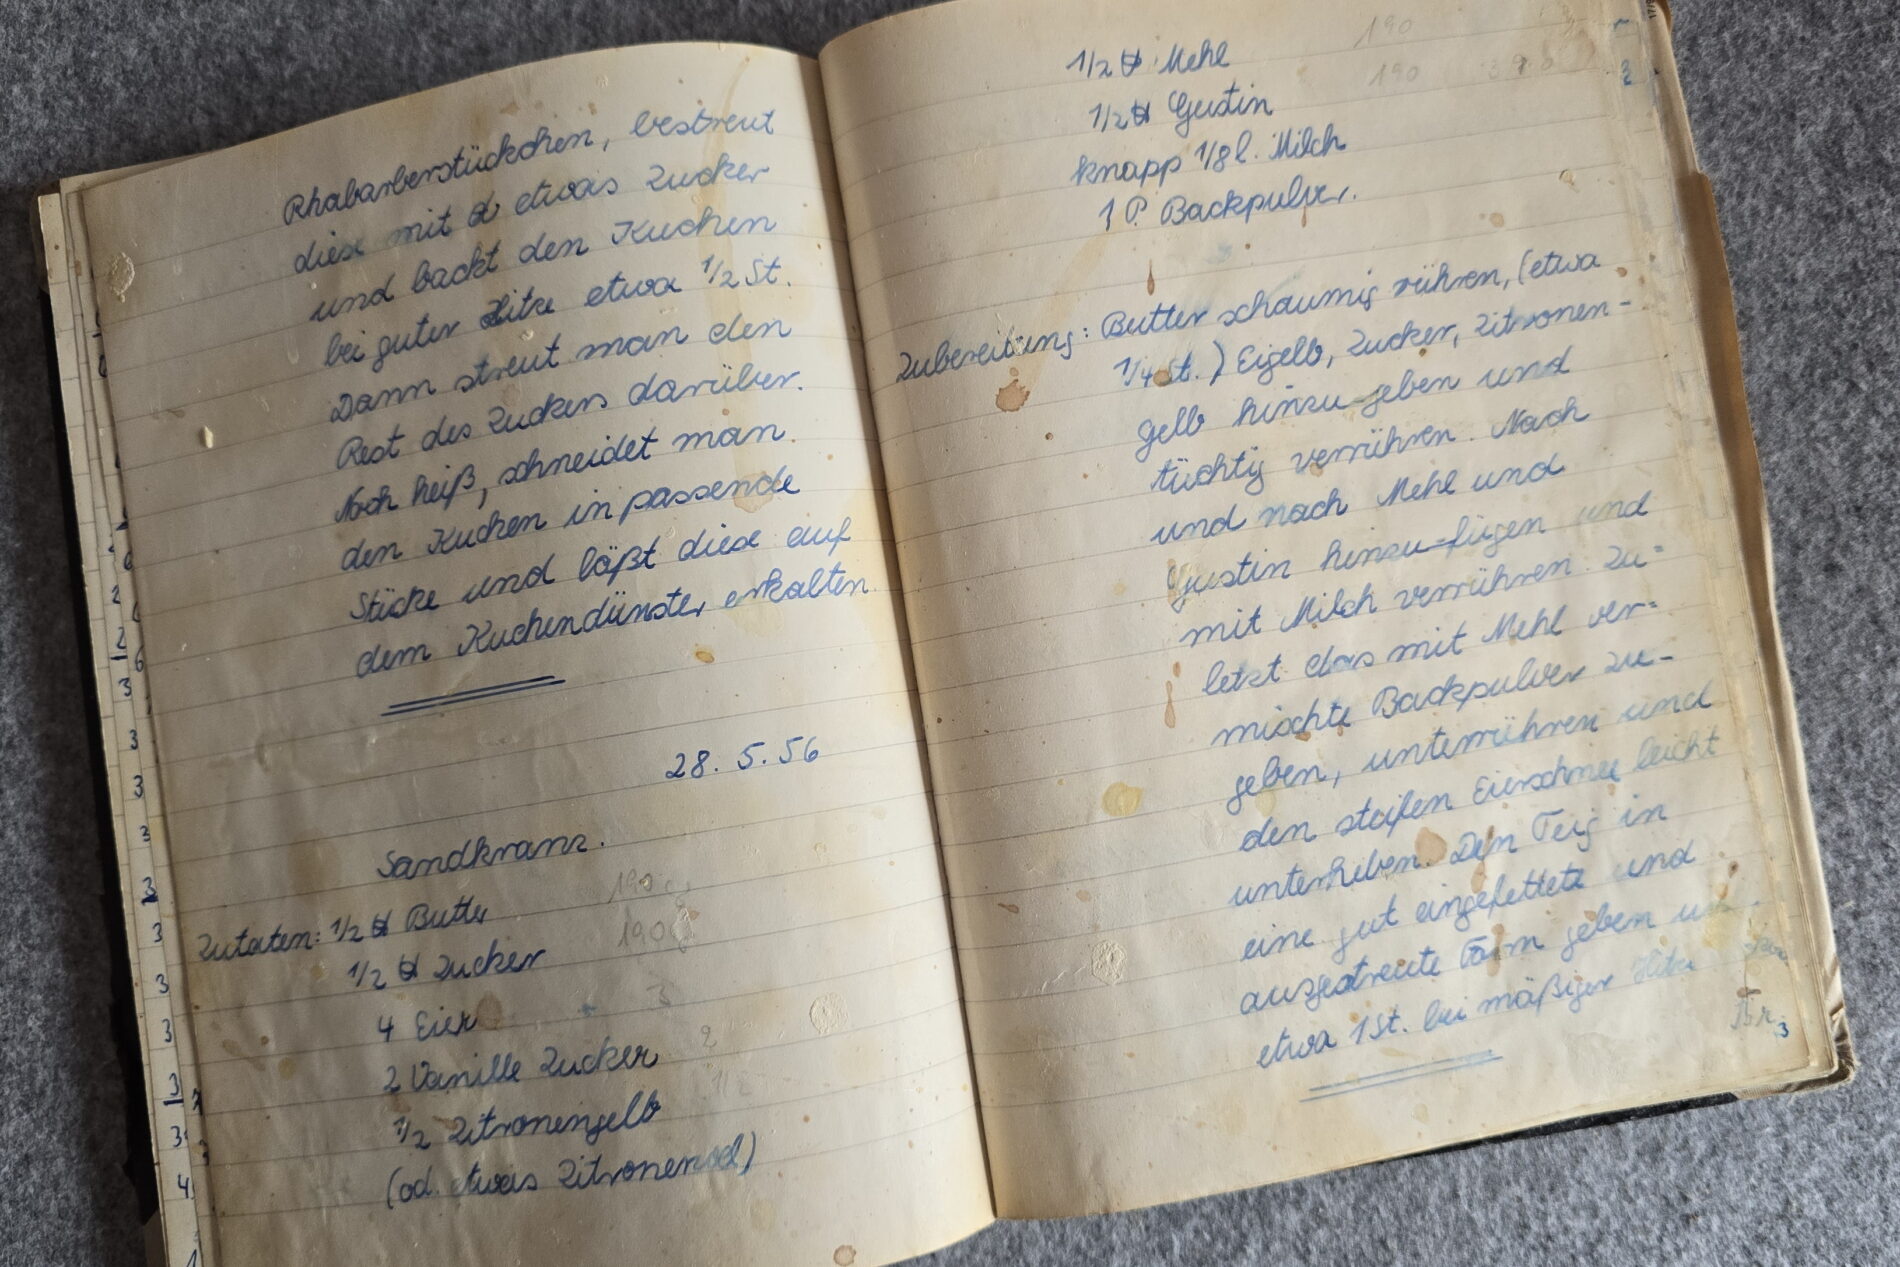 Rhabarberstückchen, bestreut
diese mit etwas Zucker
und backt den Kuchen
bei guter Hitze etwa 1/2 St.
Dann streut man den
Rest des Zuckers darüber.
Noch heiß, schneidet man
den Kuchen in passende
Stücke und läßt diese auf
dem Kuchendünster erkalten.
28. 5. 56
Sandkranz.
Zutaten: 1/2 ℔ Butter 190 g
1/2 ℔ Zucker 190 g
4 Eier 3
2 Vanille Zucker 2
1/2 Zitronengelb 1/2
(od. etwas Zitronenoel)
1/2 ℔ Mehl 190
1/2 ℔ Gustin 190
knapp 1/8 l. Milch
1 P. Backpulver.
Zubereitung: Butter schaumig rühren, (etwa
1/4 St.) Eigelb, Zucker, Zitronen-
gelb hinzu-geben und
tüchtig verrühren. Nach
und nach Mehl und
Gustin hinzu-fügen und
mit Milch verrühren. Zu-
letzt das mit Mehl ver-
mischte Backpulver zu-
geben, unterrühren und
den steifen Eierschnee leicht
unterheben. Den Teig in
eine gut eingefettete und
ausgestreute Form geben und
etwa 1 St. bei mäßiger Hitze